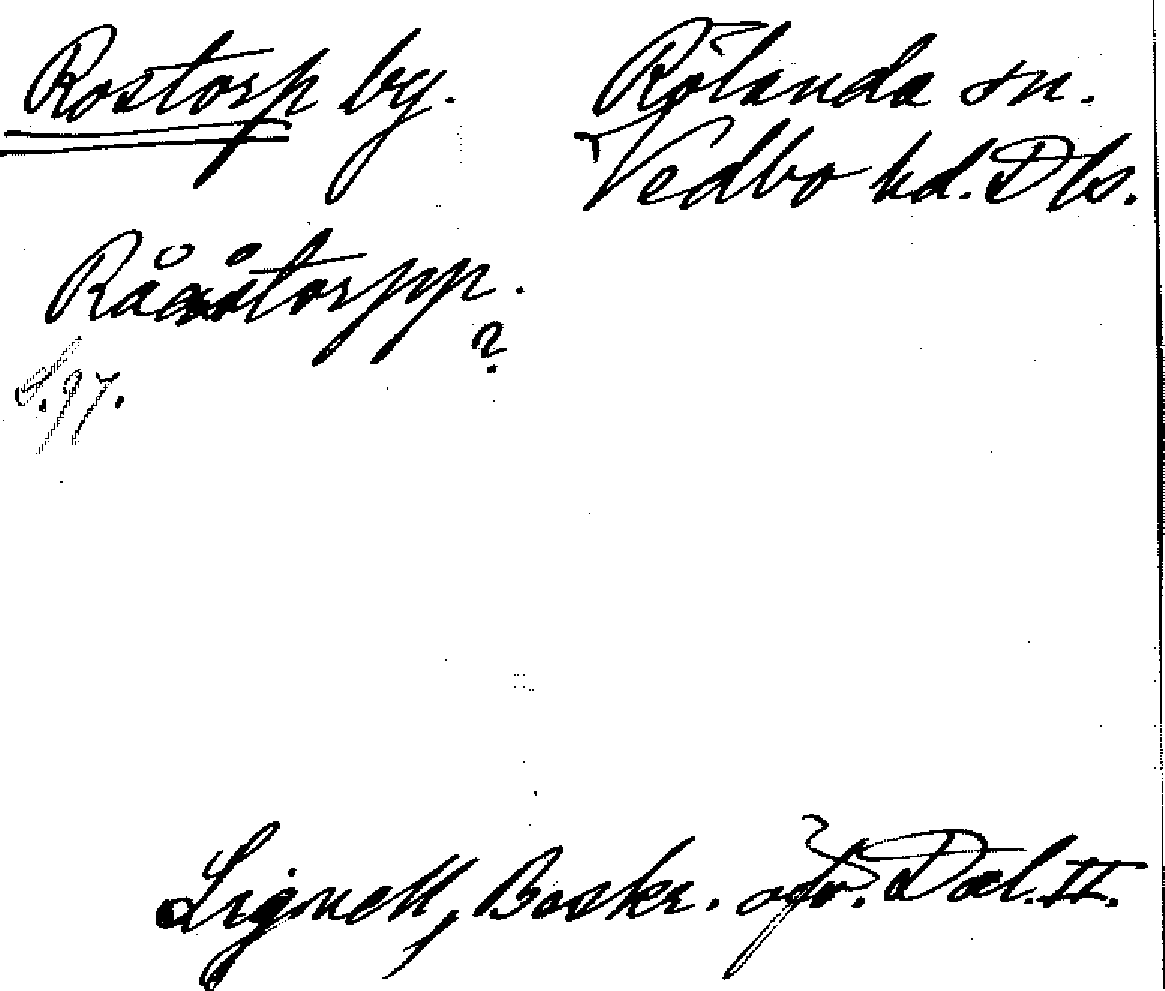 Rostorp by.
Rölanda sn.
Vedbo hd. Dls.
?
S. 97.
Lignell, Beskr. öfv. Dal. II.